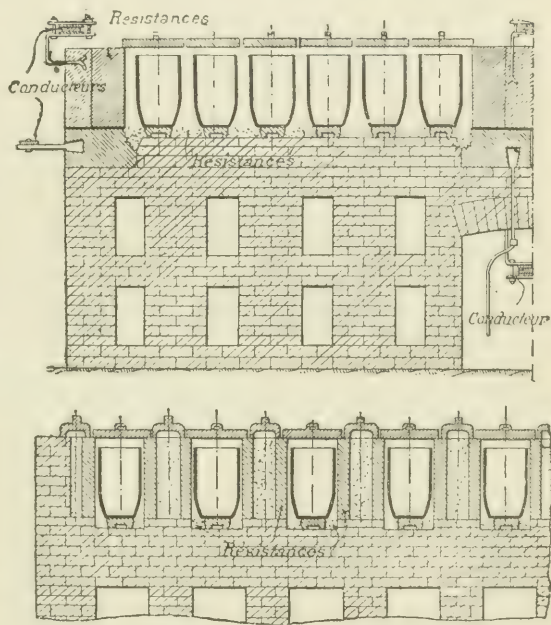 Résistances
Conducteurs
Résistances
Conducteur
Résistances